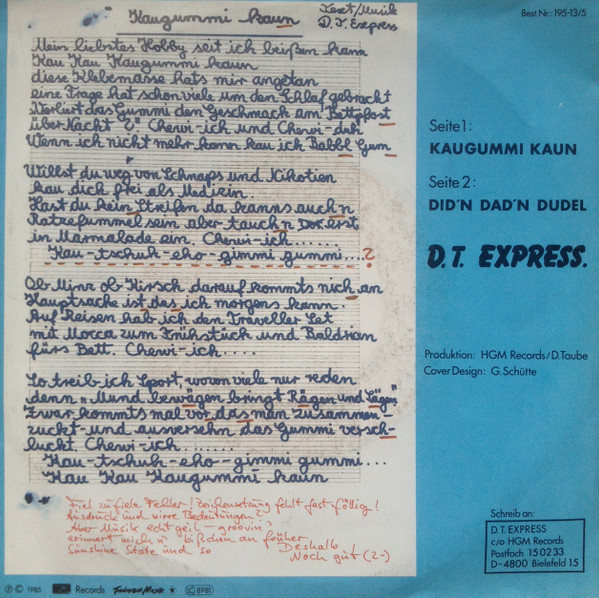 Kaugummi kaun
Text/Musik
D.T. Express
Mein liebstes Hobby seit ich beißen kann
Kau Kau Kaugummi kaun
diese Klebemasse hats mir angetan
eine Frage hat schon viele um den Schlaf gebracht
Verliert das Gummi den Geschmack am Bettpfost
über Nacht ?" Chewi-ich und Chewi-dich
Wenn ich nicht mehr kann kau ich Babbl Gum
Willst du weg von Schnaps und Nikotien
kau dich frei als Medizin
Hast du kein Streifen da kanns auch'n
Ratzefummel sein aber tauch'n Dor erst
in Marmalade ein. Chewi-ich......
Kau-tschuh-eho-gimmi gummi...?
Ob Minz ob Kirsch darauf kommts nich an
Hauptsache ist das ich morgens kann.
Auf Reisen hab ich den Traveller Set
mit Mocca zum Frühstück und Baldrian
fürs Bett. Chewi-ich....
So treib ich Sport, wovon viele nur reden
denn "Mund bewägen bringt Rägen und Sägen"
Zwar kommts mal vor das man zusammen-
zuckt-und ausversehn das Gummi versch-
luckt. Chewi-ich.......
Kau-tschuh-eho-gimmi gummi...
Kau Kau Kaugummi kaun
Fiel zu fiele Fehler! Zeichensetzung fehlt fast föllig!
Ausdruck und wirre Bedeutungen?
Aber Müsik echt geil - groovin'
erinnert mich n' bißchen an früher
Sunshine State und so
Deshalb
Noch gut (2-)
Best.Nr.: 195-13/5
Seite 1:
KAUGUMMI KAUN
Seite 2:
DID'N DAD'N DUDEL
D.T. EXPRESS.
Produktion: HGM Records/D.Taube
Cover Design: G.Schütte
Schreib an:
D.T. EXPRESS
c/o HGM Records
Postfach 15 02 33
D-4800 Bielefeld 15
Ⓟ © 1985
Records
LC 8981